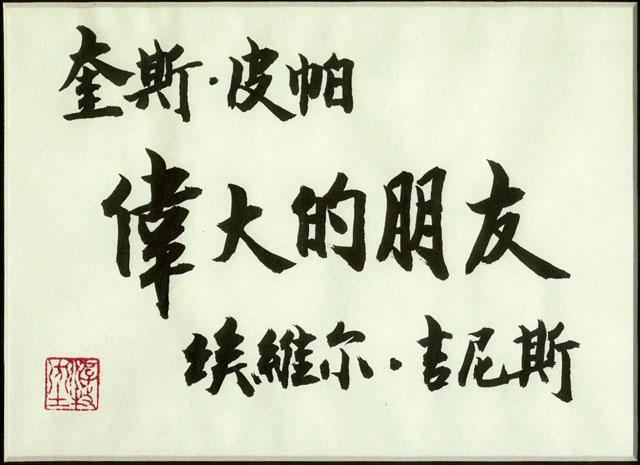 奎斯·皮帕
偉大的朋友
埃維尔·吉尼斯